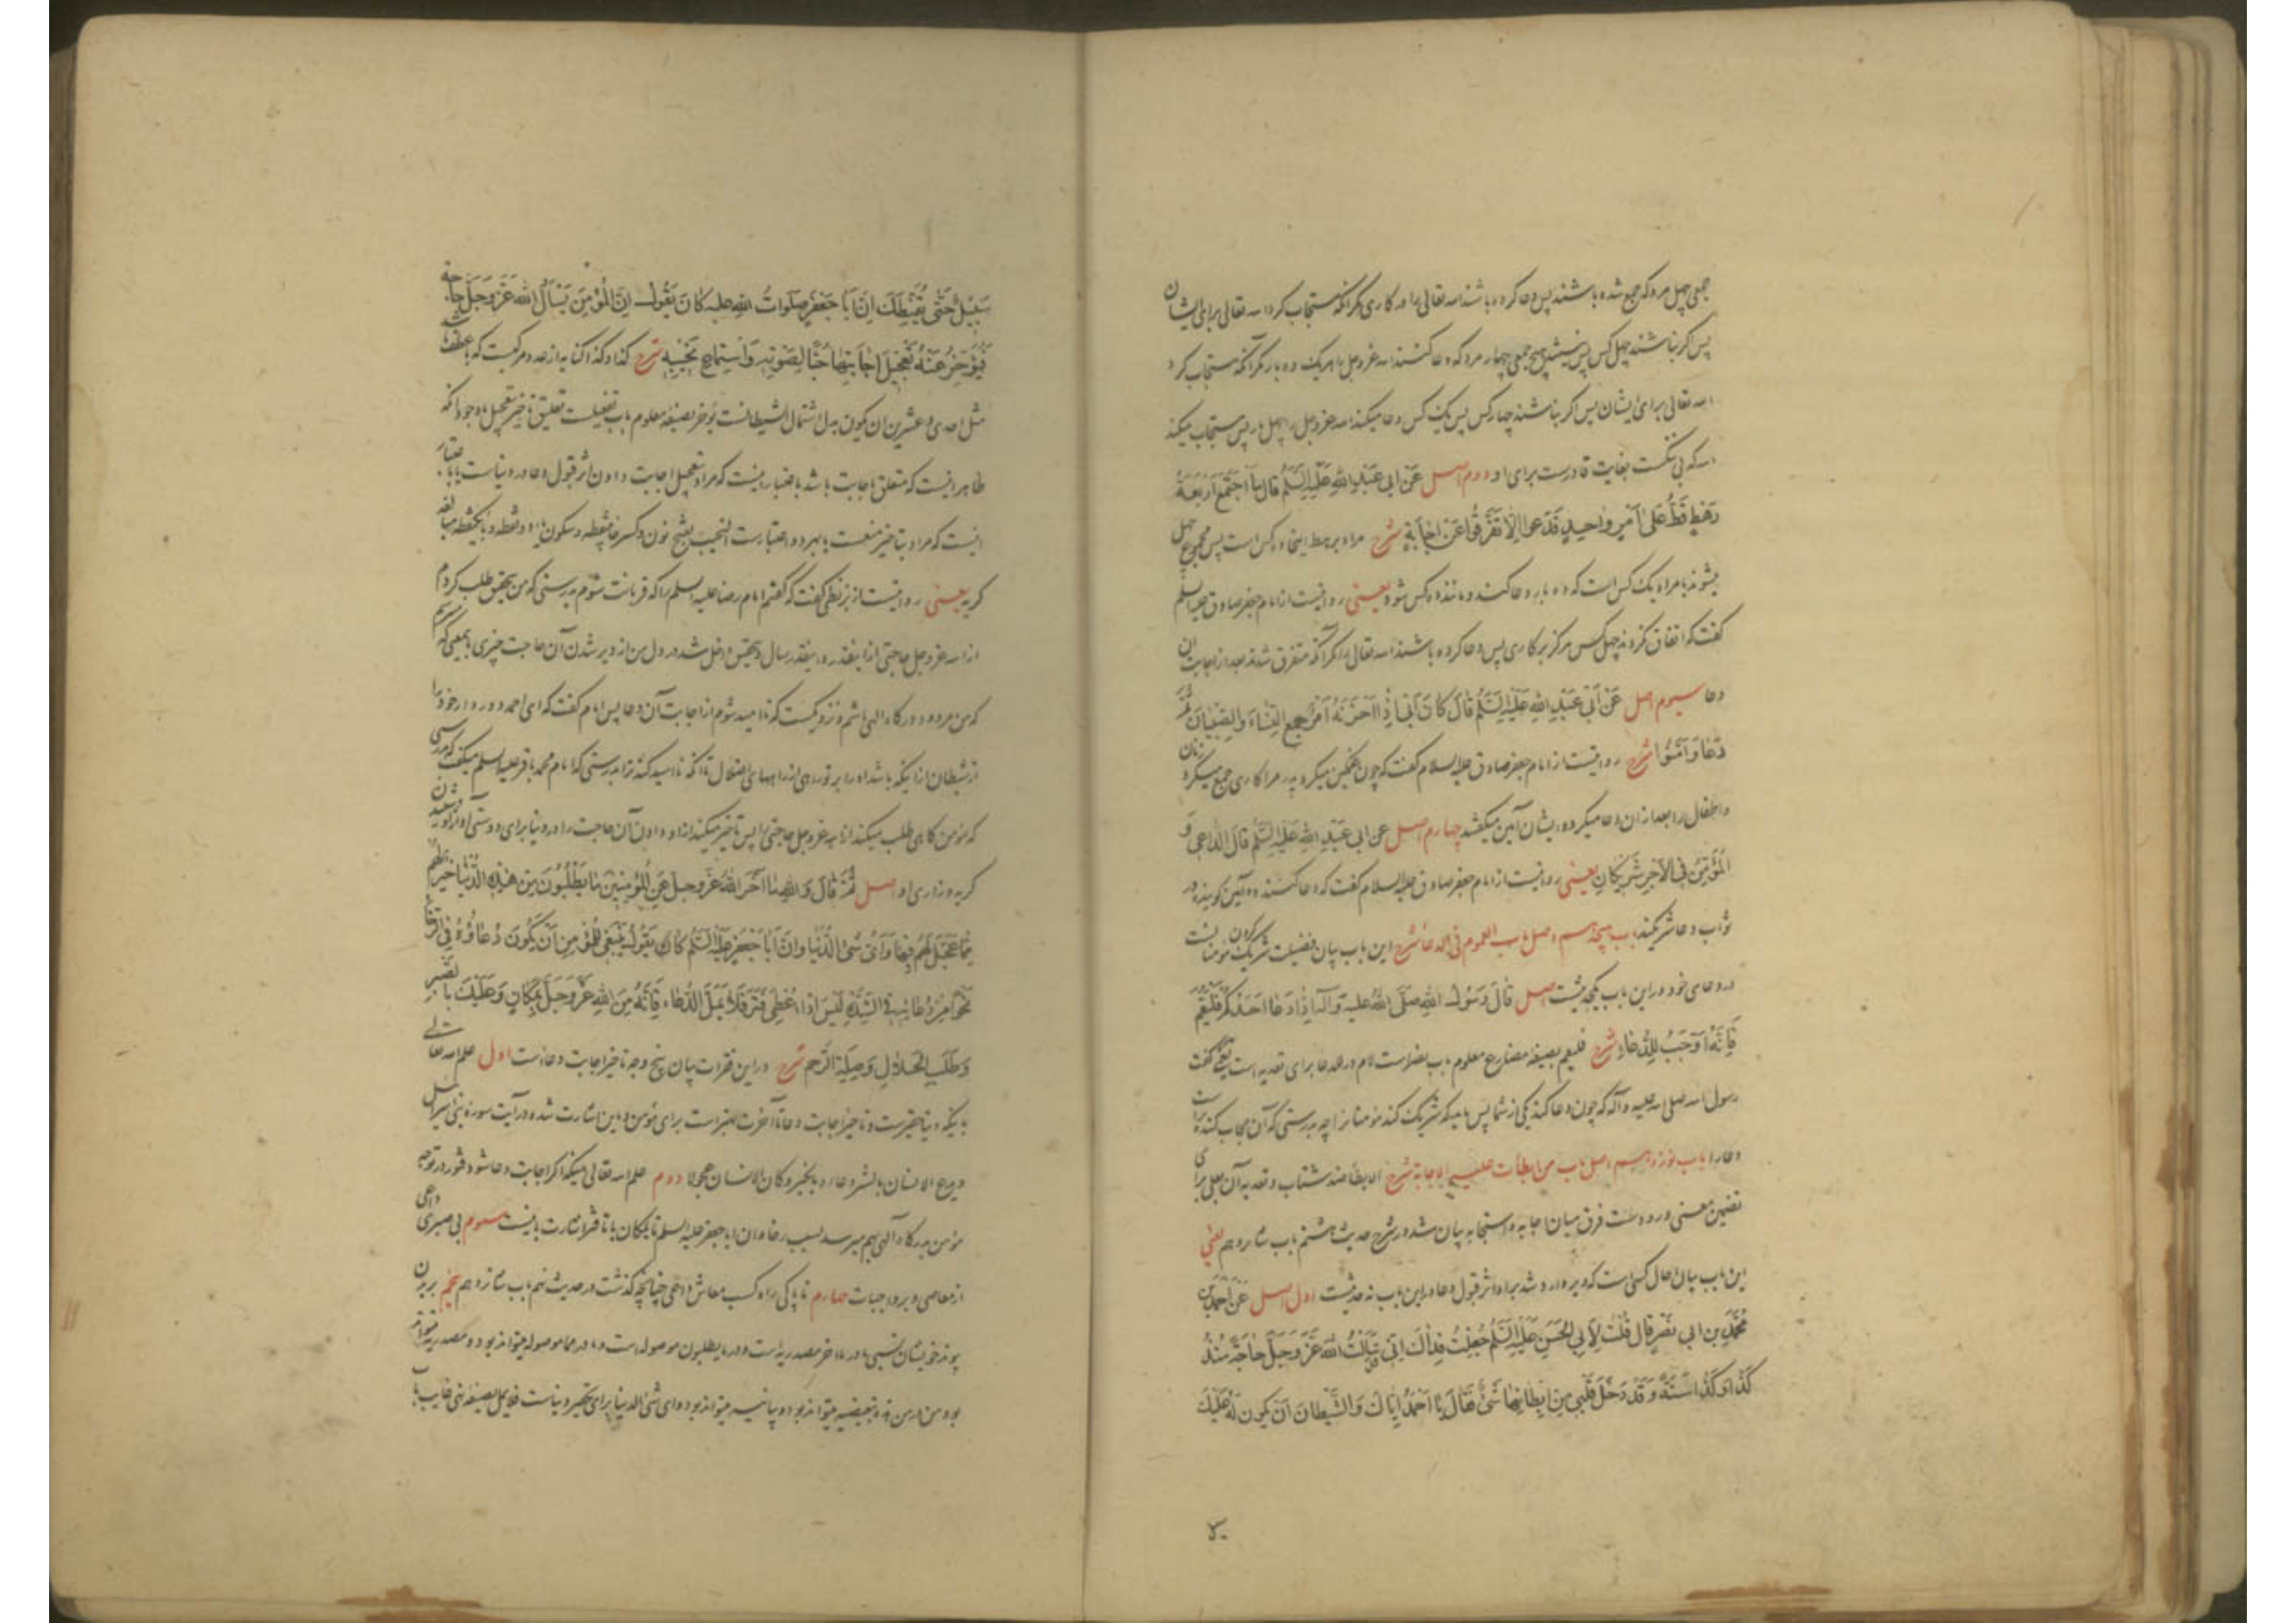 جمعی چهل مرد که جمع شده باشند پس دعا کرده باشند الله تعالی را در کاری مگر آنکه مستجاب کرد الله تعالی برای ایشان
پس اگر نباشند چهل کس پس نیستند هیچ جمعی چهار مرد که دعا کنند الله عزوجل را هر یک ده بار مگر آنکه مستجاب کرد
الله تعالی برای ایشان پس اگر نباشند چهار کس پس یک کس دعا میکند الله عزوجل را چهل بار پس مستجاب میکند
الله که بی ننگست بغایت قادرست برای او دوم اصل عَنْ اَبی عَبْدِ اللهِ عَلَیْهِ السَّلَمُ قالَ مَا اجْتَمَعَ اَرْبَعَةُ
رَهْطٍ قَطُّ عَلیٰ اَمْرٍ واحِدٍ فَدَعَوْا اِلّا تَفَرَّقُوا عَنْ اِجابَةٍ شرح مراد برهط اینجا ده کس است پس مجموع چهل
میشوند یا مراد یک کس است که ده بار دعا کند و مانند ده کس شود یعنی روایتست از امام جعفر صادق علیه السلم
گفت که اتفاق نکردند چهل کس هرگز بر کاری پس دعا کرده باشند الله تعالی را مگر آنکه متفرق شدند بعد از اجابت آن
دعا سیوم اصل عَنْ اَبی عَبْدِ اللهِ عَلَیْهِ السَّلَمُ قالَ کانَ اَبی اِذا اَحْزَنَهُ اَمْرٌ جَمَعَ النِّساءَ وَالصِّبْیانَ ثُمَّ
دَعا وَاَمَّنُوا شرح روایتست از امام جعفر صادق علیه السلام گفت که چون غمگین میکرد پدر مرا کاری جمع میکرد زنان
و اطفال را بعد از آن دعا میکرد و ایشان آمین میگفتند چهارم اصل عن ابی عَبْدِ اللهِ عَلَیْهِ السَّلَمُ قالَ الدّاعی وَ
الْمُؤَمِّنُ فِی الْاَجْرِ شَریکانِ یعنی روایتست از امام جعفر صادق علیه السلام گفت که دعا کننده و آمین گوینده در
ثواب دعا شریکند باب هیجدهم اصل باب العموم فی الدعاء شرح این باب بیان فضیلت شریک کردن مؤمنانست
در دعای خود در این باب یک حدیثست اصل قالَ رَسُولُ اللهِ صَلَّی اللهُ عَلَیه وَآلِهِ اِذا دَعا اَحَدُکُمْ فَلْیَعُمَّ
فَاِنَّهُ اَوْجَبُ لِلدُّعاءِ شرح فلیعم بصیغه مضارع معلوم باب نصرست لام در للدعا برای تعدیه است یعنی گفت
رسول الله صلی الله علیه وآله که چون دعا کند یکی از شما پس باید که شریک کند مؤمنان را چه بدرستی که آن مجاب کننده تراست
دعا را باب نوزدهم اصل باب من ابطأت علیه الاجابة شرح الابطاء ضد شتاب و تعدیه آن بعلی برای
تضمین معنی ورودست فرق میان اجابه و استجابه بیان شد در شرح حدیث هشتم باب شانزدهم یعنی
این باب بیان حال کسی است که دیر وارد شد بر او اثر قبول دعا در این باب نه حدیثست اول اصل عَنْ اَحْمَدَ بْنِ
مُحَمَّدِ بن ابی نَصْرٍ قالَ قُلْتُ لِاَبِی الْحَسَنِ عَلَیْهِ السَّلَمُ جُعِلْتُ فِداکَ اِنّی قَدْ سَاَلْتُ اللهَ عَزَّ وَجَلَّ حاجَةً مُنْذُ
کَذا وَکَذا سَنَةً وَقَدْ دَخَلَ قَلْبی مِنْ اِبْطائِها شَیْءٌ فَقالَ یا اَحْمَدُ اِیّاکَ وَالشَّیْطانَ اَنْ یَکُونَ لَهُ عَلَیْکَ
سَبیلٌ حَتّی یُقَنِّطَکَ اِنَّ اَبا جَعْفَرٍ صَلَواتُ اللهِ علیه کانَ یَقُولُ اِنَّ الْمُؤْمِنَ یَسْاَلُ اللهَ عَزَّ وَجَلَّ حاجَةً
فَیُؤَخِّرُ عَنْهُ تَعْجیلَ اِجابَتِها حُبًّا لِصَوْتِهِ وَاسْتِماعِ نَحیبِهِ شرح کذا وکذا کنایه از عدد مرکبست که با عطف باشد
مثل احدی وعشرین ان یکون بدل اشتمال الشیطانست یؤخر بصیغه معلوم باب تفعیلست تعلیق تاخیر بتعجیل باوجود آنکه
ظاهر اینست که متعلق باجابت باشد باعتبار اینست که مراد بتعجیل اجابت دادن اثر قبول دعا در دنیاست یا باعتبار
اینست که مراد بتاخیر منعست یا بهر دو اعتبارست النحیب بفتح نون و کسر حاء بی نقطه و سکون یاء دو نقطه و باء یکنقطه مبالغه
گریه یعنی روایتست از بزنطی گفت که گفتم امام رضا علیه السلم را که قربانت شوم بدرستی که من بتحقیق طلب کردم
از الله عزوجل حاجتی از اینقدر و اینقدر سال و بتحقیق داخل شد در دل من از دیر شدن آن حاجت چیزی باین معنی که میترسم
که من مردود درگاه الهی باشم و نزدیکست که ناامید شوم از اجابت آن دعا پس امام گفت که ای احمد دور دار خود را
از شیطان از اینکه باشد او را بر تو راهی از راههای اضلال تا آنکه ناامید کند ترا بدرستی که امام محمد باقر علیه السلم میگفت که بدرستی
که مؤمن گاهی طلب میکند از الله عزوجل حاجتی را پس تاخیر میکند از او دادن آن حاجت را در دنیا برای دوستی آواز او و شنیدن
گریه و زاری او اصل ثُمَّ قالَ وَاللهِ ما اَخَّرَ اللهُ عَزَّ وَجَلَّ عَنِ الْمُؤْمِنینَ ما یَطْلُبُونَ مِنْ هٰذِهِ الدُّنْیا خَیْرٌ لَهُمْ
مِمّا عَجَّلَ لَهُمْ فیها وَاَیُّ شَیْءٍ الدُّنْیا وَاِنَّ اَبا جَعْفَرٍ عَلَیْهِ السَّلَمُ کانَ یَقُولُ یَنْبَغی لِلْمُؤْمِنِ اَنْ یَکُونَ دُعاؤُهُ فِی الرَّخاءِ
نَحْوًا مِنْ دُعائِهِ فِی الشِّدَّةِ لَیْسَ اِذا اُعْطِیَ فَتَرَ فَلا یَمَلَّ الدُّعاءَ فَاِنَّهُ مِنَ اللهِ عَزَّ وَجَلَّ بِمَکانٍ وَعَلَیْکَ بِالصَّبْرِ
وَطَلَبِ الْحَلالِ وَصِلَةِ الرَّحِمِ شرح در این فقرات بیان پنج وجه تاخیر اجابت دعاست اول علم الله تعالی
باینکه دنیا حقیرست و تاخیر اجابت دعا تا آخرت بهترست برای مؤمن و باین اشارت شده در آیت سوره بنی اسرائیل
ویدع الانسان بالشر دعاءه بالخیر وکان الانسان عجولا دوم علم الله تعالی باینکه اگر اجابت دعا شود فتور در توجه
مؤمن بدرگاه الهی بهم میرسد بسبب رخا و ان ابا جعفر علیه السلم تا بمکان یا تا فتر اشارت باینست سوم بی صبری داعی
از معاصی و بر واجبات چهارم ناپاکی راه کسب معاش داعی چنانچه گذشت در حدیث نهم باب شانزدهم پنجم بریدن
پیوند خویشان نسبی ما در ما اخر مصدریه است و در ما یطلبون موصوله است و ما در مما موصوله میتواند بود و مصدریه میتواند
بود من در من هذه تبعیضیه میتواند بود و بیانیه میتواند بود و ای شیء الدنیا برای تحقیر دنیاست فلا یمل بصیغه نهی غایب باب